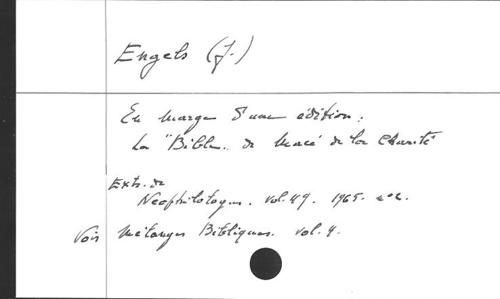 Engels (J.)
En marge d'une édition :
La "Bible" de Macé de la Charité
Extr. de
Neophilologus. vol. 49. 1965. n° 2.
Voir Mélanges Bibliques. vol. 4.